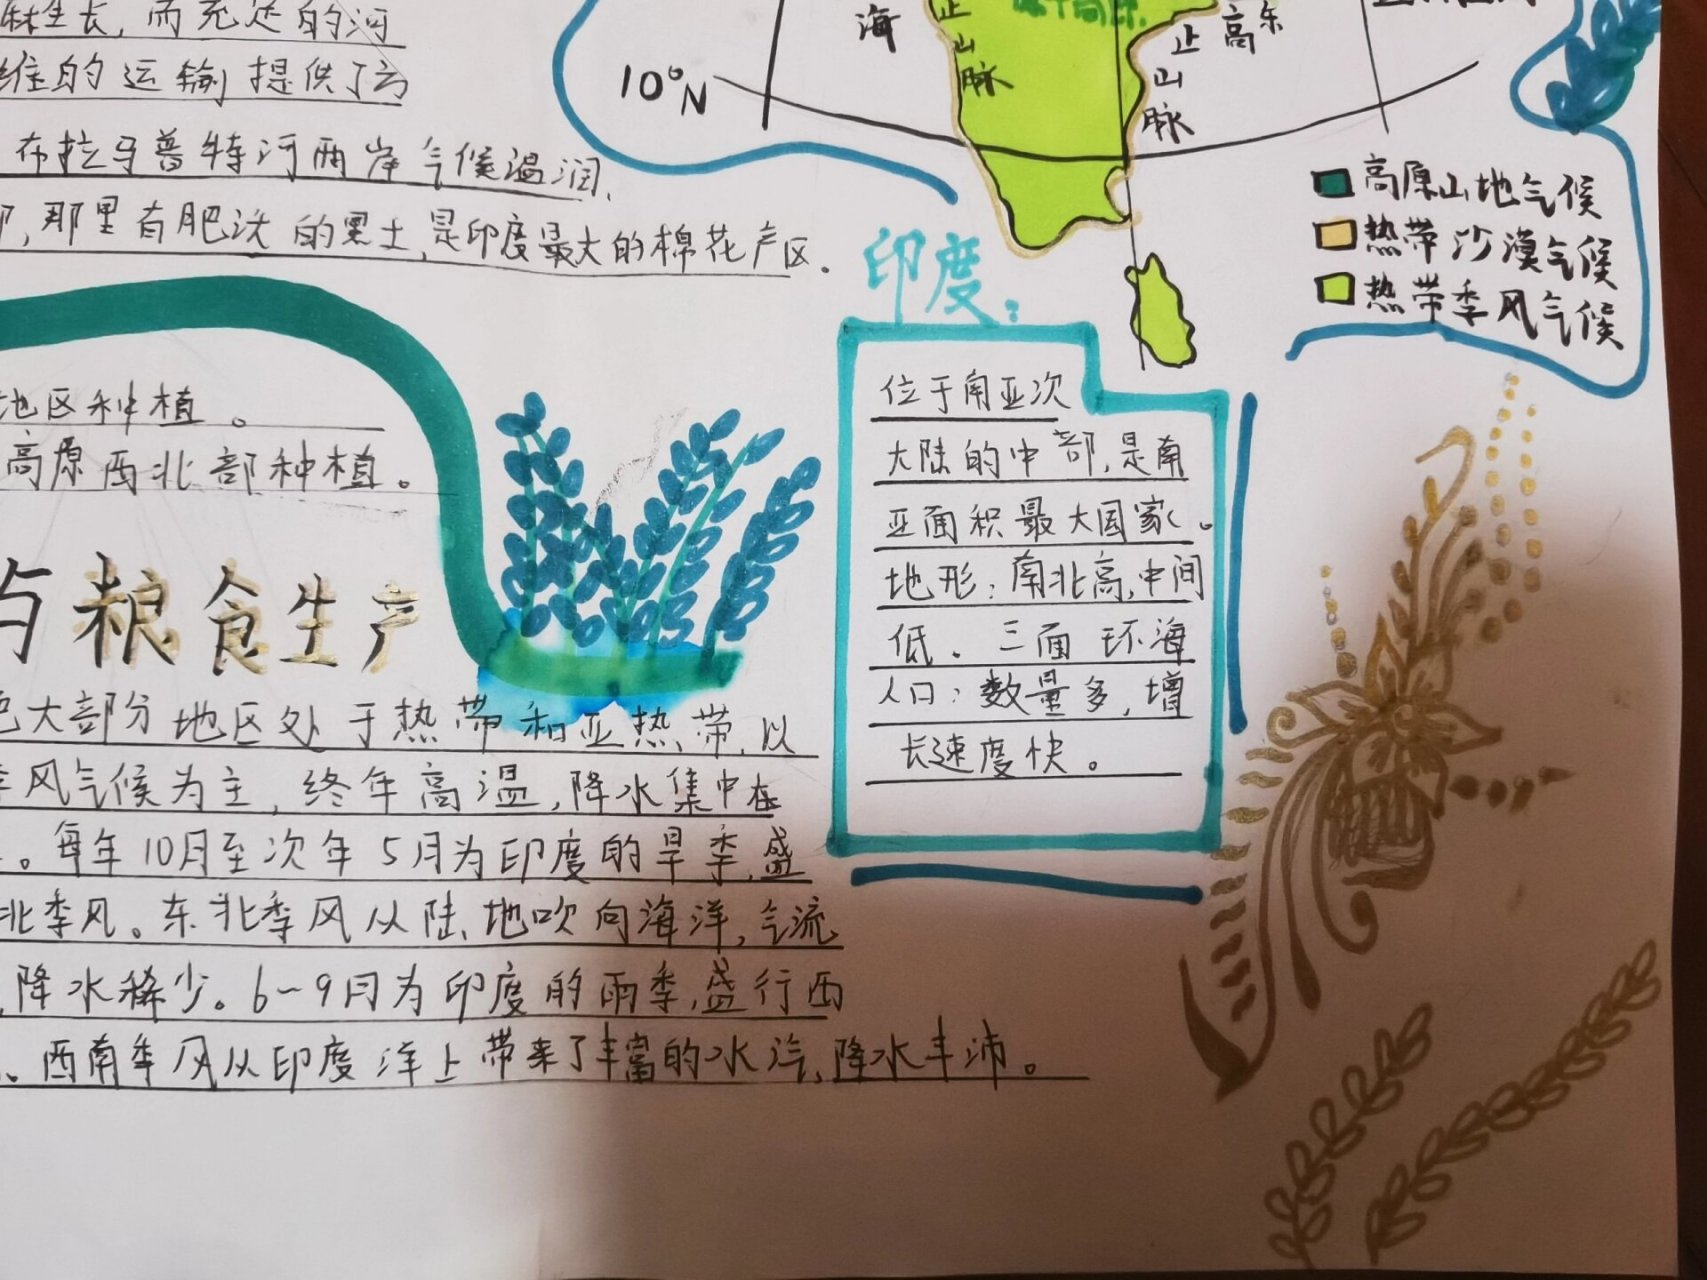 麻生长,而充足的河
维的运输提供了方
布拉马普特河两岸气候温润、
部,那里有肥沃的黑土,是印度最大的棉花产区.
海
10°N
止山脉
止山脉
高东
高原山地气候
热带沙漠气候
热带季风气候
印度:
位于南亚次
大陆的中部,是南
亚面积最大国家。
地形:南北高,中间
低.三面环海
人口:数量多,增
长速度快。
地区种植。
高原西北部种植。
与粮食生产
绝大部分地区处于热带和亚热带,以
季风气候为主,终年高温,降水集中在
。每年10月至次年5月为印度的旱季,盛
北季风。东北季风从陆地吹向海洋,气流
,降水稀少。6-9月为印度的雨季,盛行西
。西南季风从印度洋上带来了丰富的水汽,降水丰沛。